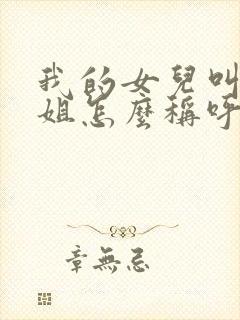 我的女兒叫
姐怎麼稱呼
章無忌